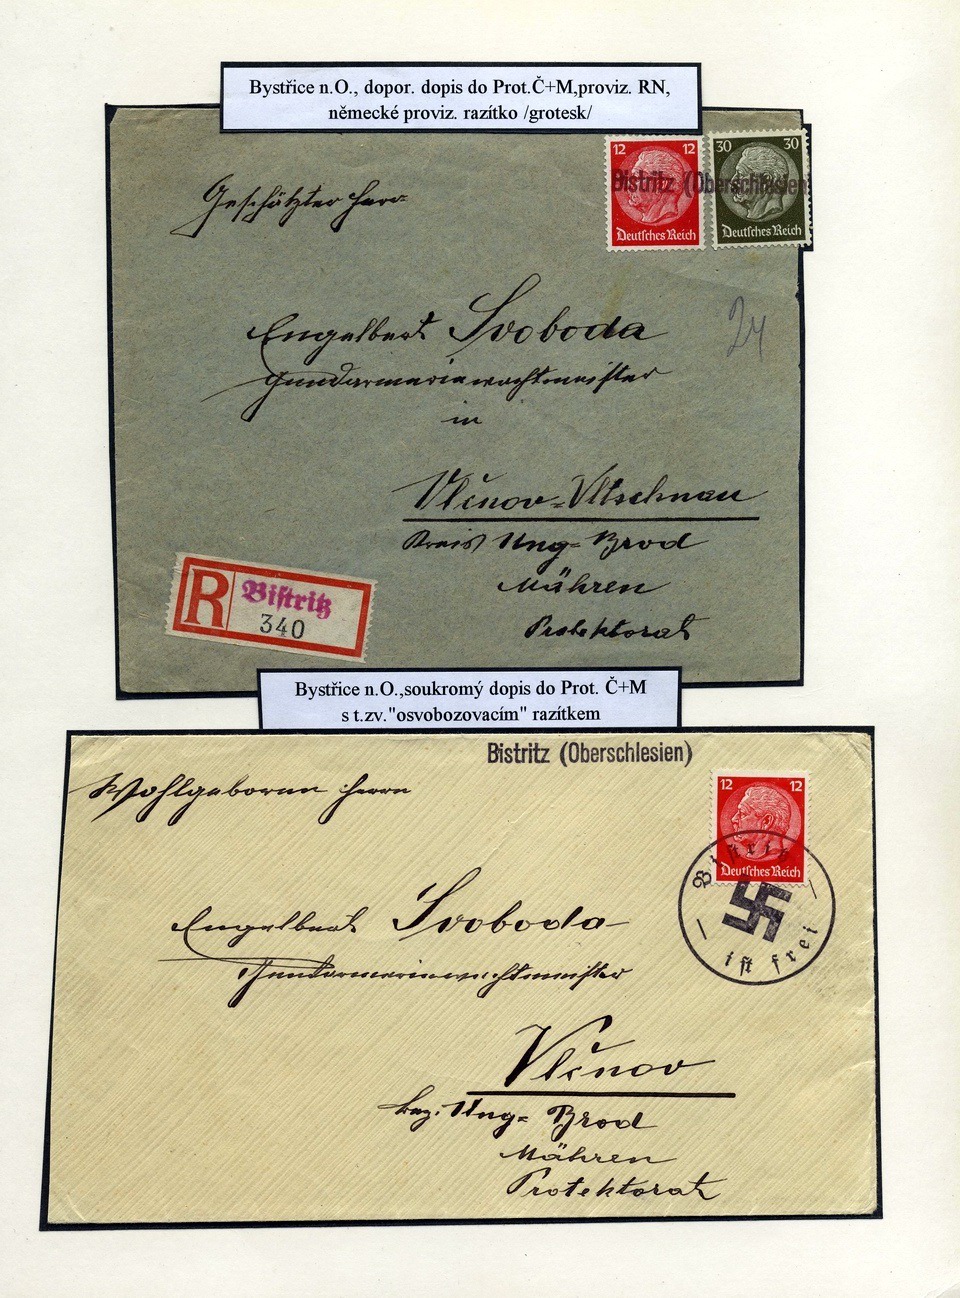 Bystřice n.O., dopor. dopis do Prot.Č+M,proviz. RN,
německé proviz. razítko /grotesk/
12 12 30 30
Bistritz (Oberschlesien)
Deutsches Reich Deutsches Reich
Geschätzter Herr
Engelbert Svoboda
Gendarmeriewachtmeister
24
in
Vlčnov-Vltschnau
Kreis Ung-Brod
Mähren
Protektorat
R Bistritz
340
Bystřice n.O.,soukromý dopis do Prot. Č+M
s t.zv."osvobozovacím" razítkem
Bistritz (Oberschlesien)
12 12
Wohlgeboren Herrn
Deutsches Reich
Bistritz
ist frei
Engelbert Svoboda
Gendarmeriewachtmeister
Vlčnov
bez. Ung-Brod
Mähren
Protektorat